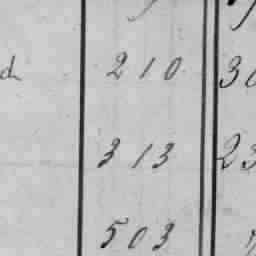 d 210 30
313 23
503